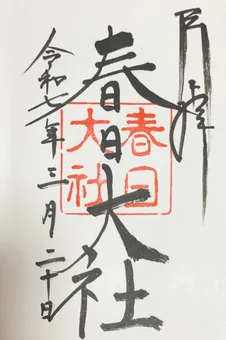 月
春日大社
春日
大社
令和七年三月二十日